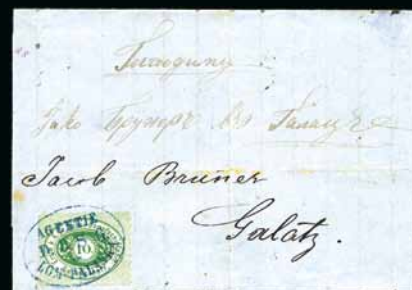 Господину
Јако Брунеръ въ Галацъ
Jacob Bruner
Galatz.
AGENTIE
10
LOM-PALANKA